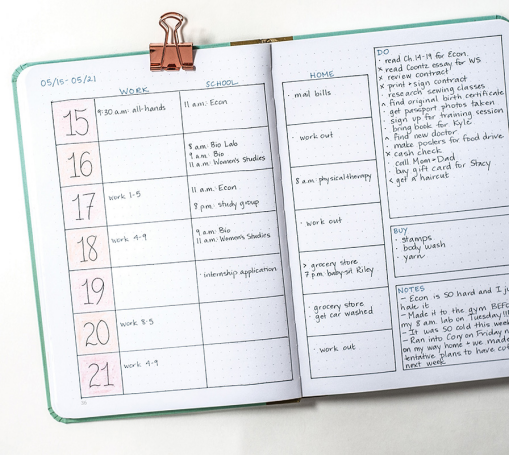 05/15-05/21
WORK
SCHOOL
15
9:30 a.m: all-hands
11 a.m: Econ
16
8 a.m: Bio Lab
9 a.m: Bio
11 a.m: Women's Studies
17
work 1-5
11 a.m: Econ
8 p.m: study group
18
work 4-9
9 a.m: Bio
11 a.m: Women's Studies
19
· internship application
20
work 8-5
21
work 4-9
HOME
· mail bills
· work out
8 a.m: physical therapy
· work out
> grocery store
7 p.m: baby-sit Riley
· grocery store
· get car washed
· work out
DO
· read Ch.14-19 for Econ.
x read Coontz essay for WS
x review contract
x print + sign contract
· research sewing classes
find original birth certificate
· get passport photos taken
· sign up for training session
· bring book for Kyle
find new doctor
· make posters for food drive
x cash check
· call Mom + Dad
· buy gift card for Stacy
< get a haircut
BUY
· stamps
· body wash
· yarn
NOTES
- Econ is SO hard and I
hate it
- Made it to the gym
my 8 a.m. lab on Tuesday!!!
- It was SO cold this
- Ran into Cory on Friday
on my way home + we made
tentative plans to have
next week